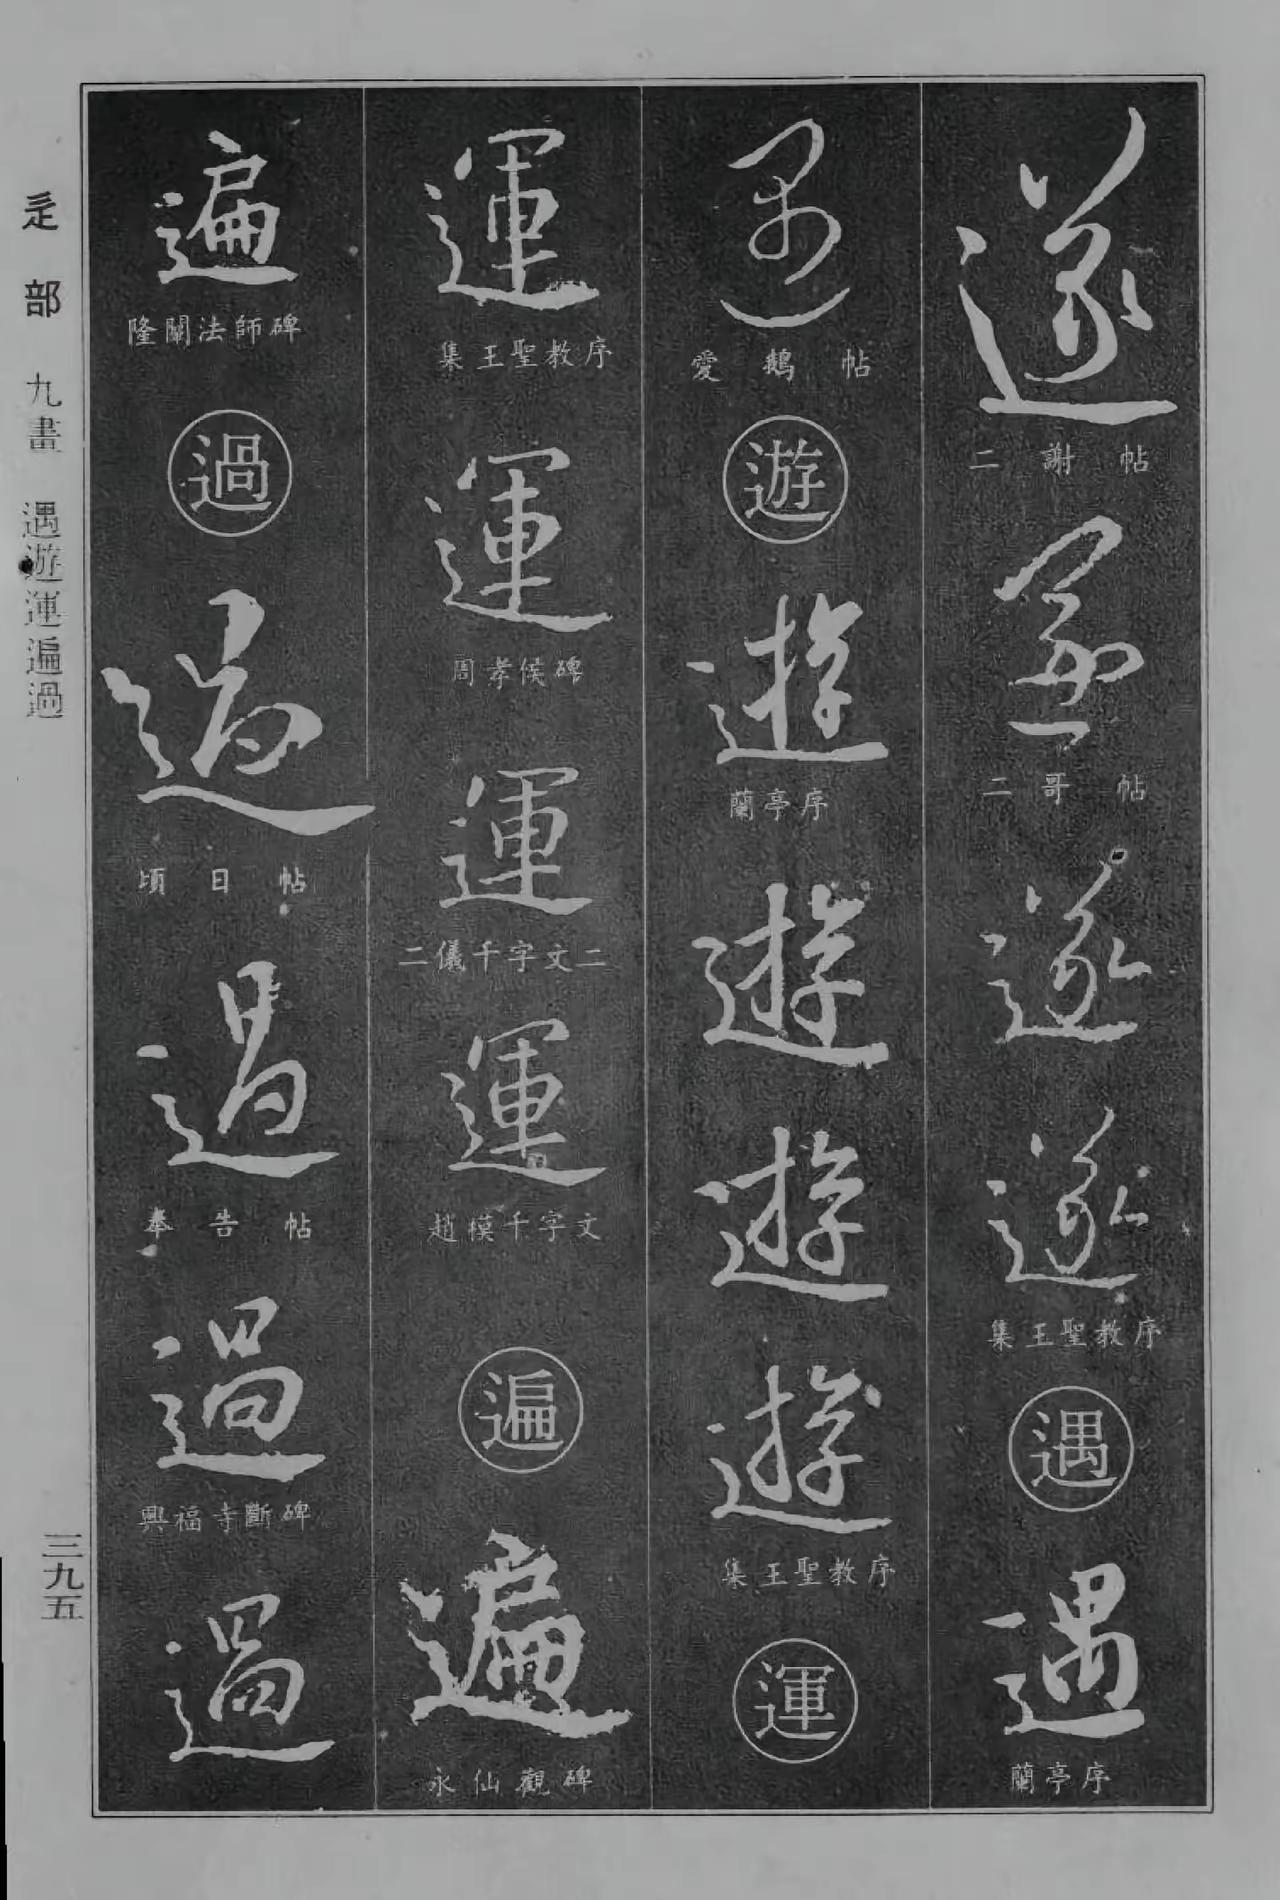 遂
二謝帖
遂
二哥帖
遂
遂
集王聖教序
遇
遇
蘭亭序
遇
愛鵝帖
遊
遊
蘭亭序
遊
遊
遊
集王聖教序
運
運
集王聖教序
運
周孝侯碑
運
二儀千字文二
運
趙模千字文
遍
遍
永仙觀碑
遍
隆闡法師碑
過
過
頃日帖
過
奉告帖
過
興福寺斷碑
過
辵部 九畫 遇遊運遍過
三九五